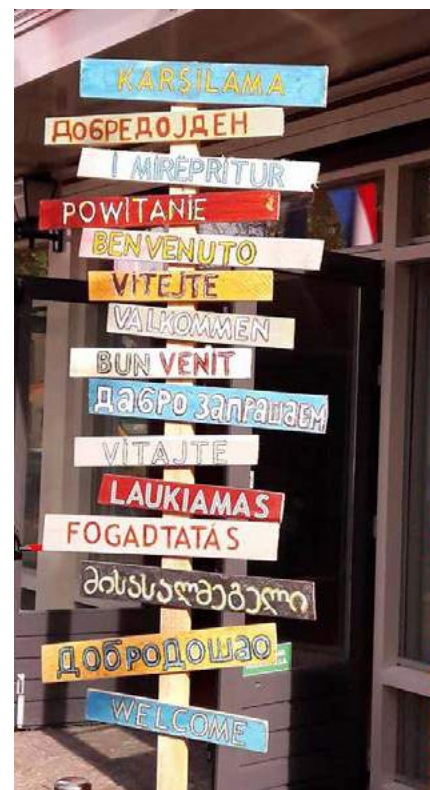 KARŞILAMA
ДОБРЕДОЈДЕН
I MIRËPRITUR
POWITANIE
BENVENUTO
VÍTEJTE
VALKOMMEN
BUN VENIT
ДАБРО ЗАПРАШАЕМ
VÍTAJTE
LAUKIAMAS
FOGADTATÁS
მისასალმებელი
ДОБРОДОШАО
WELCOME